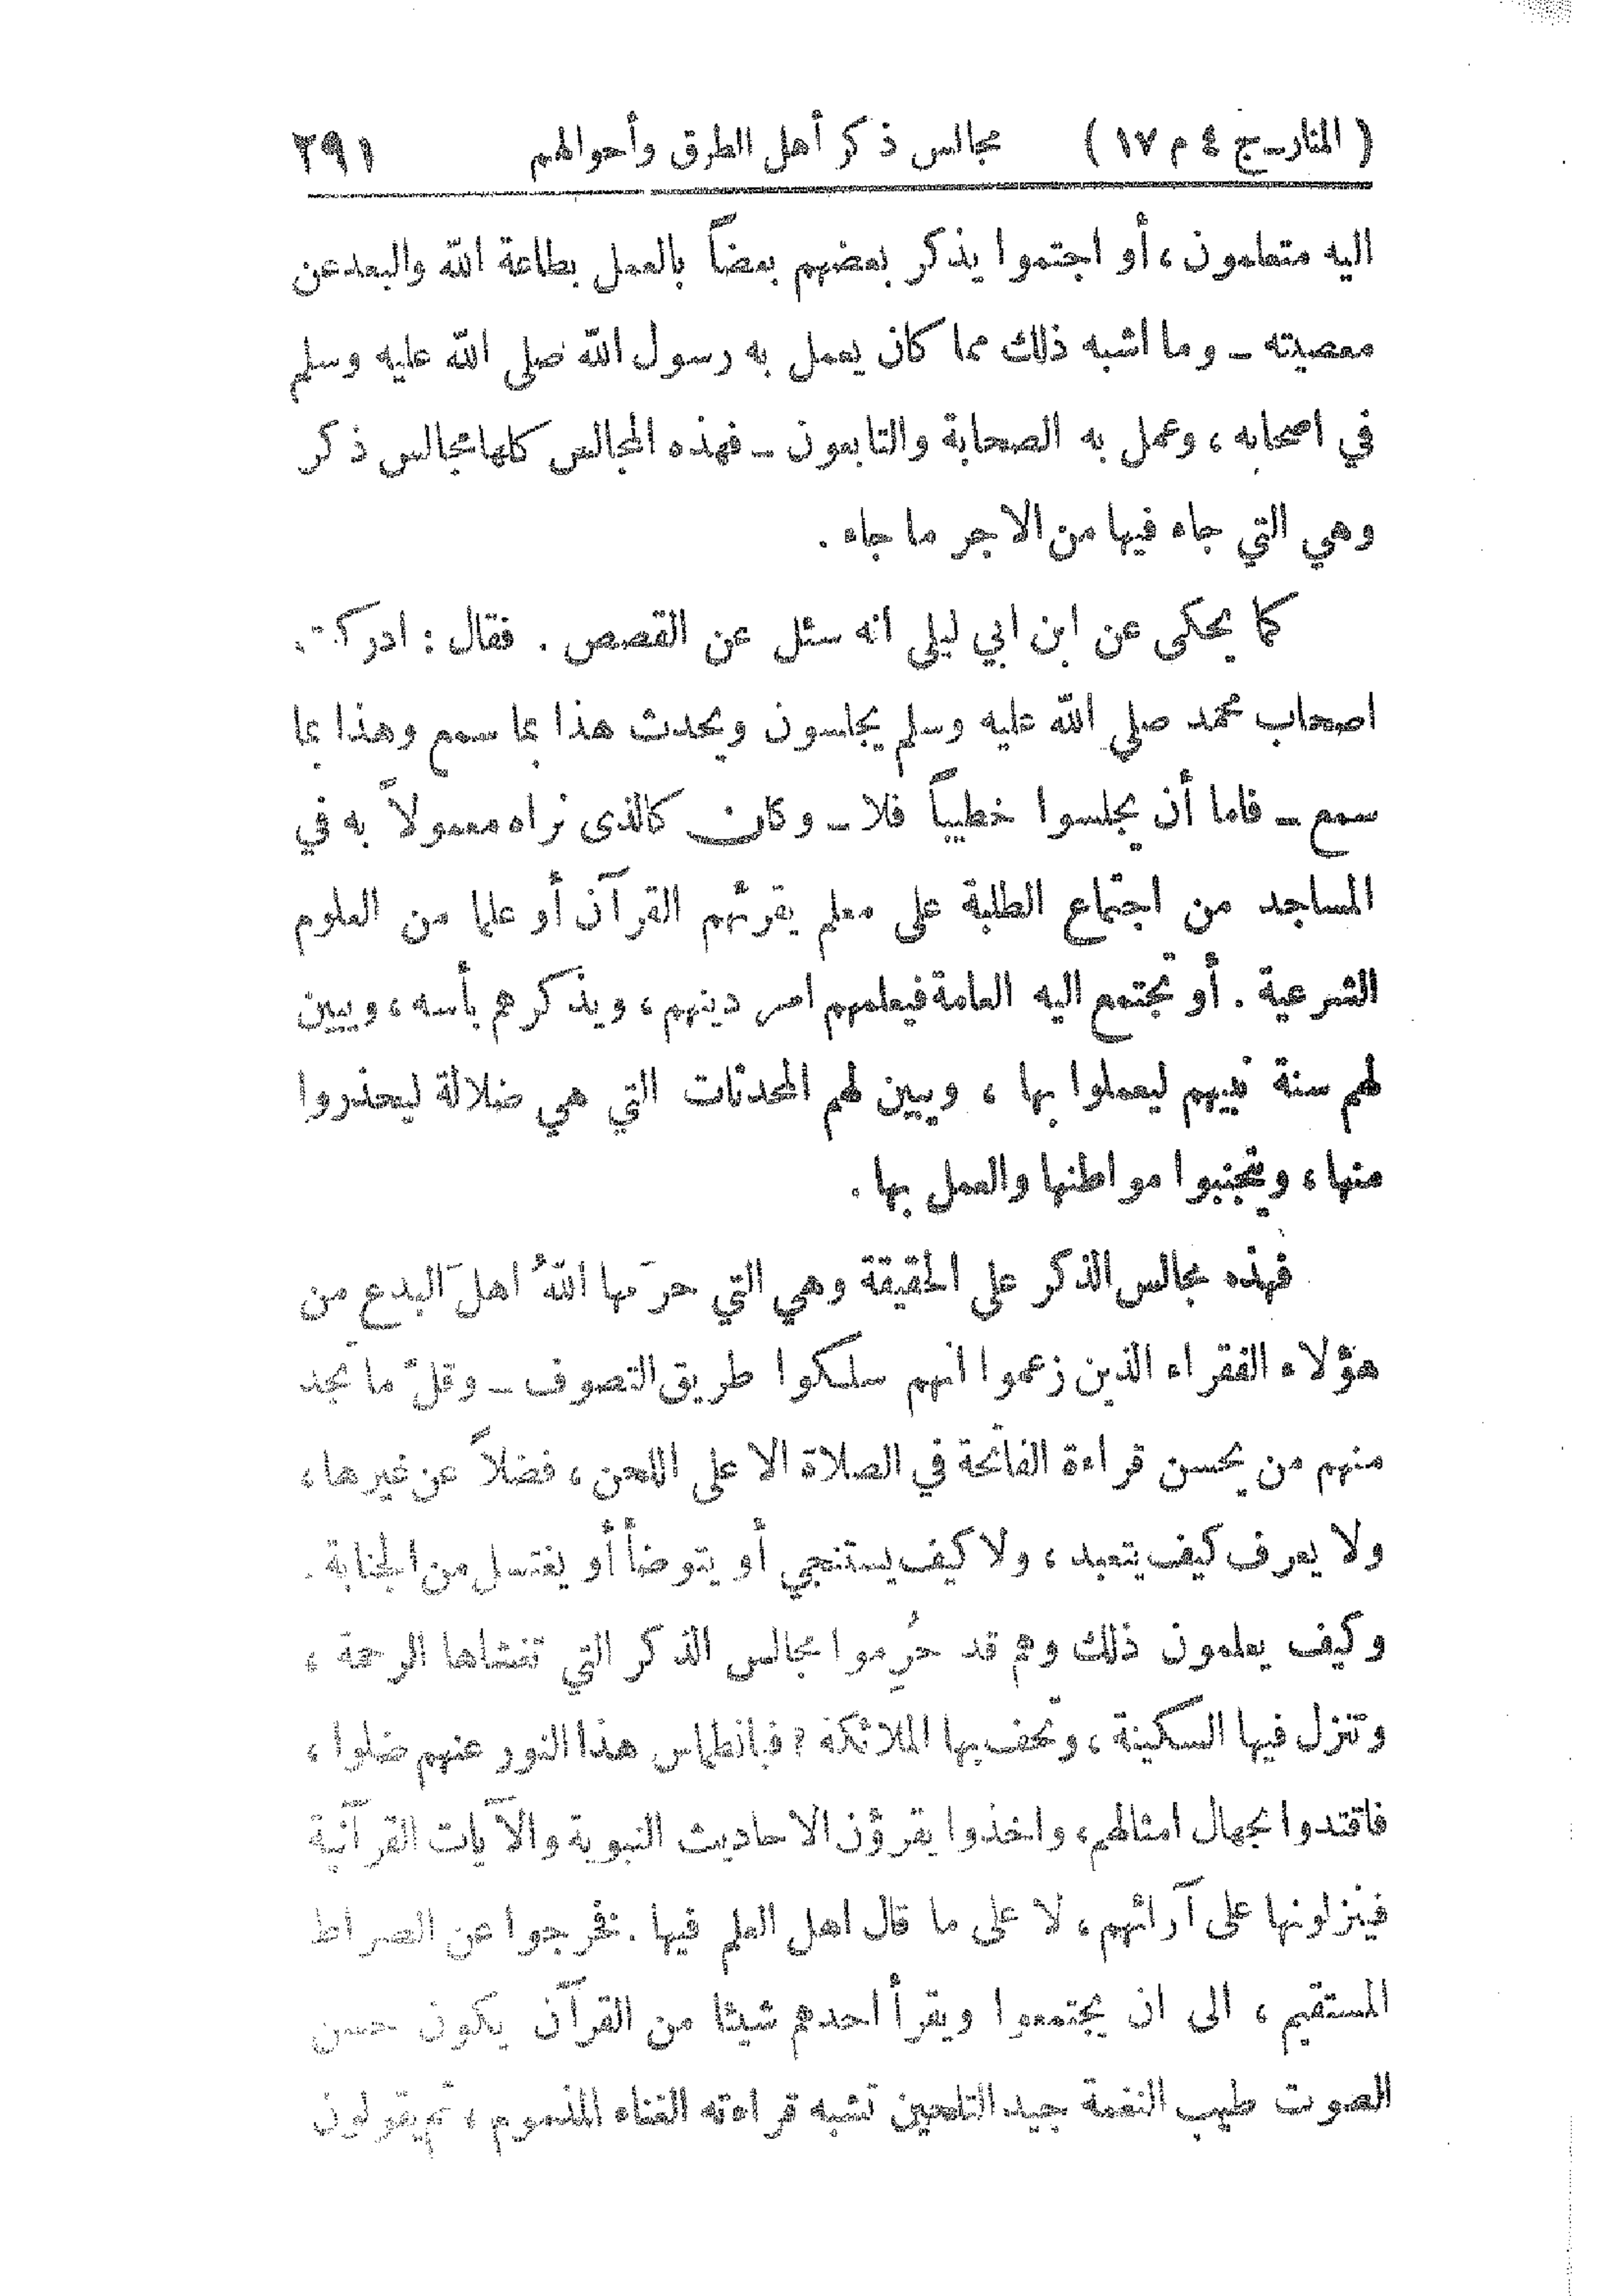 ( المنار ـ ج ٤ م ١٧ ) مجالس ذكر أهل الطرق وأحوالهم ٢٩١
اليه متعلمون ، أو اجتمعوا يذكر بعضهم بعضاً بالعمل بطاعة الله والبعد عن
معصيته ـ وما اشبه ذلك مما كان يعمل به رسول الله صلى الله عليه وسلم
في اصحابه ، وعمل به الصحابة والتابعون ـ فهذه المجالس كلها مجالس ذكر
وهي التي جاء فيها من الاجر ما جاء .
كما يحكى عن ابن ابي ليلى انه سئل عن القصص . فقال : ادركت
اصحاب محمد صلى الله عليه وسلم يجلسون ويحدث هذا بما سمع وهذا بما
سمع ـ فاما أن يجلسوا خطيباً فلا ـ وكان كالذى نراه معمولاً به في
المساجد من اجتماع الطلبة على معلم يقرئهم القرآن أو علما من العلوم
الشرعية . أو تجتمع اليه العامة فيعلمهم امر دينهم ، ويذكرهم بأسه ، ويبين
لهم سنة نبيهم ليعملوا بها ، ويبين لهم المحدثات التي هي ضلالة ليحذروا
منها ، ويتجنبوا مواطنها والعمل بها .
فهذه مجالس الذكر على الحقيقة وهي التي حرَمها اللهُ اهلَ البدع من
هؤلاء الفقراء الذين زعموا انهم سلكوا طريق التصوف ـ وقلّ ما تجد
منهم من يحسن قراءة الفاتحة في الصلاة الا على اللحن ، فضلاً عن غيرها ،
ولا يعرف كيف يتعبد ، ولا كيف يستنجي أو يتوضأ أو يغتسل من الجنابة .
وكيف يعلمون ذلك وهم قد حُرِموا مجالس الذكر التي تغشاها الرحمة ،
وتنزل فيها السكينة ، وتحف بها الملائكة ؟ فبانطماس هذا النور عنهم ضلوا ،
فاقتدوا بجهال امثالهم ، واخذوا يقرؤن الاحاديث النبوية والآيات القرآنية
فينزلونها على آرائهم ، لا على ما قال اهل العلم فيها . فخرجوا عن الصراط
المستقيم ، الى ان يجتمعوا ويقرأ احدهم شيئا من القرآن يكون حسن
الصوت طيب النغمة جيد التلحين تشبه قراءته الغناء المذموم ، ثم يقولون